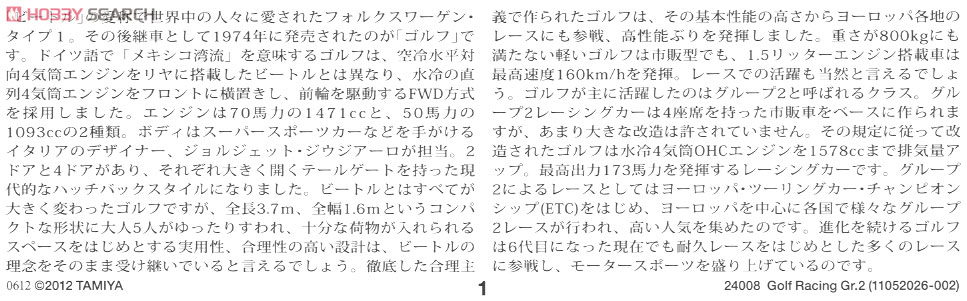 HOBBY SEARCH
世界中の人々に愛されたフォルクスワーゲン・
タイプ1。その後継車として1974年に発売されたのが「ゴルフ」で
す。ドイツ語で「メキシコ湾流」を意味するゴルフは、空冷水平対
向4気筒エンジンをリヤに搭載したビートルとは異なり、水冷の直
列4気筒エンジンをフロントに横置きし、前輪を駆動するFWD方式
を採用しました。エンジンは70馬力の1471ccと、50馬力の
1093ccの2種類。ボディはスーパースポーツカーなどを手がける
イタリアのデザイナー、ジョルジェット・ジウジアーロが担当。2
ドアと4ドアがあり、それぞれ大きく開くテールゲートを持った現
代的なハッチバックスタイルになりました。ビートルとはすべてが
大きく変わったゴルフですが、全長3.7m、全幅1.6mというコンパ
クトな形状に大人5人がゆったりすわれ、十分な荷物が入れられる
スペースをはじめとする実用性、合理性の高い設計は、ビートルの
理念をそのまま受け継いでいると言えるでしょう。徹底した合理主
義で作られたゴルフは、その基本性能の高さからヨーロッパ各地の
レースにも参戦、高性能ぶりを発揮しました。重さが800kgにも
満たない軽いゴルフは市販型でも、1.5リッターエンジン搭載車は
最高速度160km/hを発揮。レースでの活躍も当然と言えるでしょ
う。ゴルフが主に活躍したのはグループ2と呼ばれるクラス。グル
ープ2レーシングカーは4座席を持った市販車をベースに作られま
すが、あまり大きな改造は許されていません。その規定に従って改
造されたゴルフは水冷4気筒OHCエンジンを1578ccまで排気量ア
ップ。最高出力173馬力を発揮するレーシングカーです。グループ
2によるレースとしてはヨーロッパ・ツーリングカー・チャンピオン
シップ(ETC)をはじめ、ヨーロッパを中心に各国で様々なグループ
2レースが行われ、高い人気を集めたのです。進化を続けるゴルフ
は6代目になった現在でも耐久レースをはじめとした多くのレース
に参戦し、モータースポーツを盛り上げているのです。
0612 ©2012 TAMIYA
1
24008 Golf Racing Gr.2 (11052026-002)